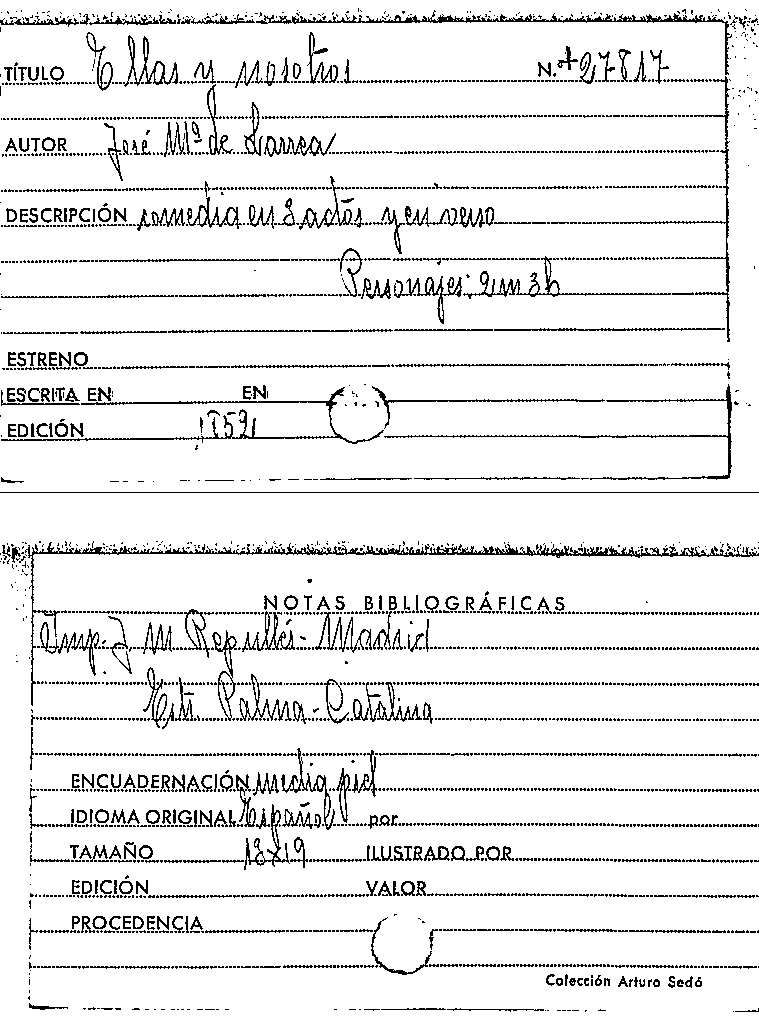 TÍTULO Ellas y nosotros N.+27817
AUTOR José Mª de Larrea
DESCRIPCIÓN comedia en 3 actos y en verso
Personajes: 2m 3h
ESTRENO
ESCRITA EN EN
EDICIÓN 1852
NOTAS BIBLIOGRÁFICAS
Imp. J M Repullés - Madrid
Estr. Palma - Catalina
ENCUADERNACIÓN media piel
IDIOMA ORIGINAL Español por
TAMAÑO 13x19 ILUSTRADO POR
EDICIÓN VALOR
PROCEDENCIA
Colección Arturo Sedó